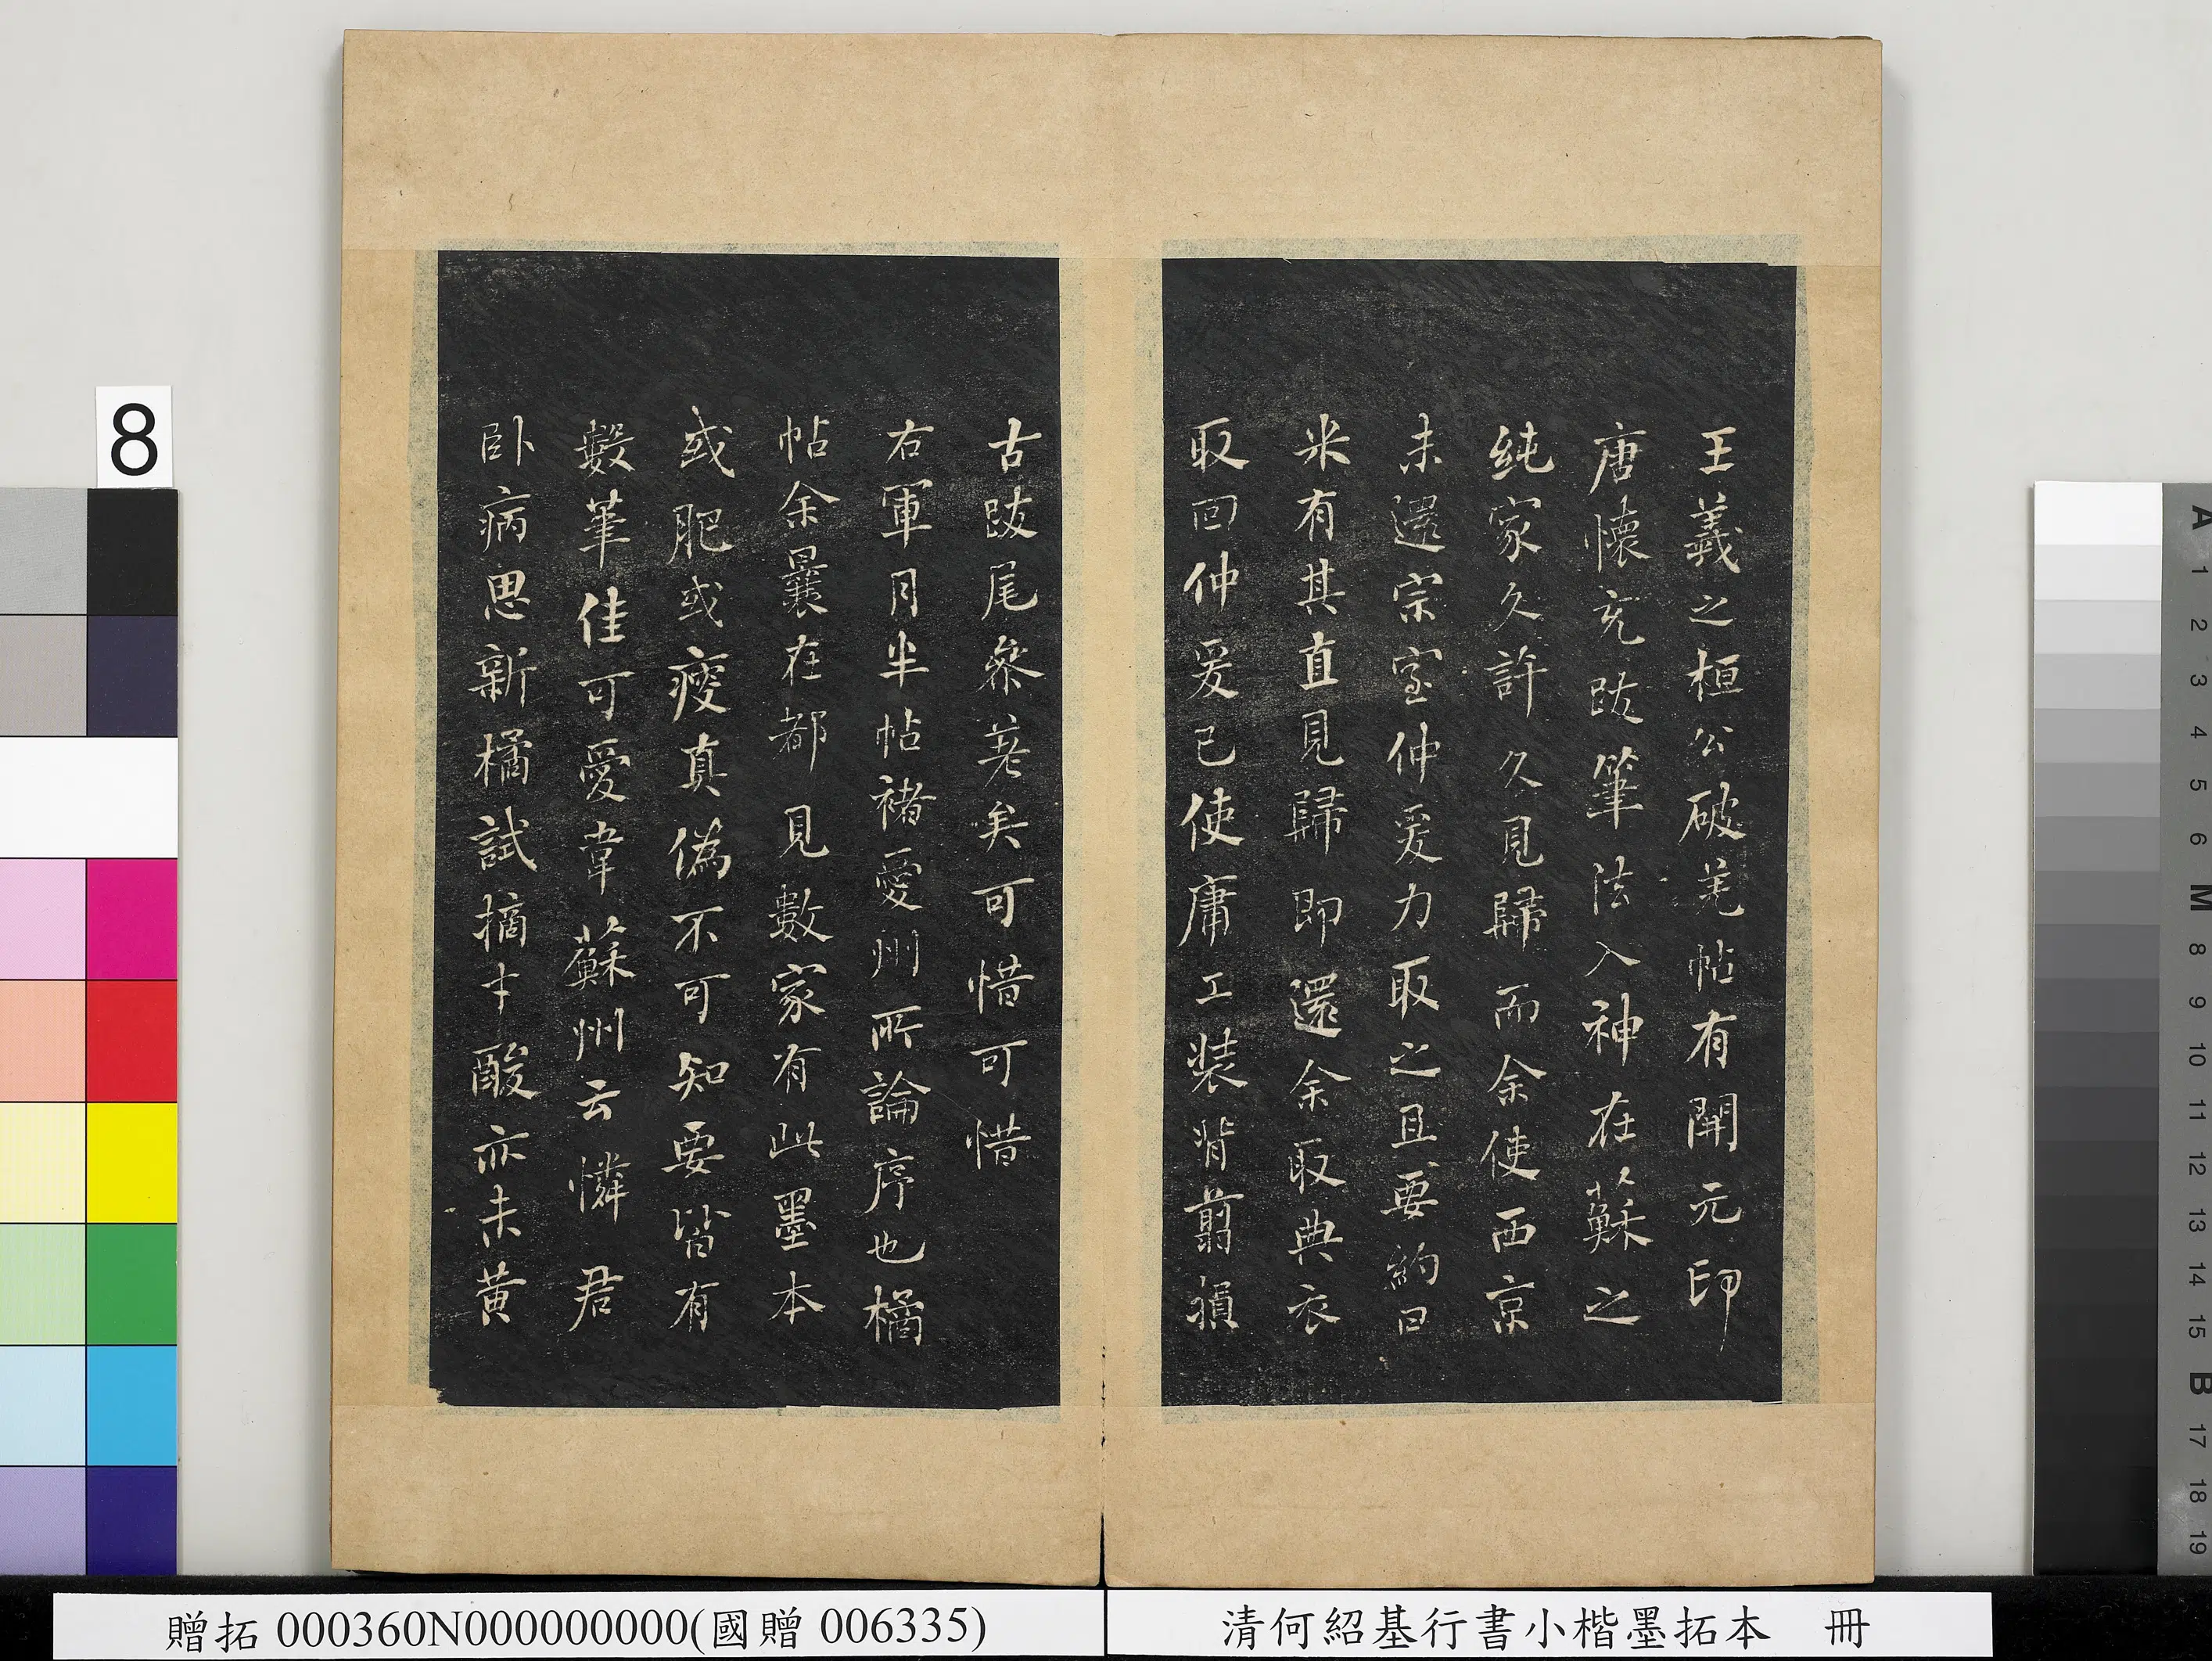 王羲之桓公破羌帖有開元印
唐懷充跋筆法入神在蘇之
純家久許久見歸而余使西京
未還宗室仲爰力取之且要約曰
米有其直見歸即還余取典衣
取回仲爰已使庸工裝背翦損
古跋尾參差矣可惜可惜
右軍月半帖褚愛州所論序也橘
帖余曩在都見數家有此墨本
或肥或瘦真偽不可知要皆有
數筆佳可愛韋蘇州云憐君
臥病思新橘試摘才酸亦未黃
8
A 1 2 3 4 5 6 M 8 9 10 11 12 13 14 15 B 17 18 19
贈拓 000360N000000000(國贈 006335)
清何紹基行書小楷墨拓本 冊